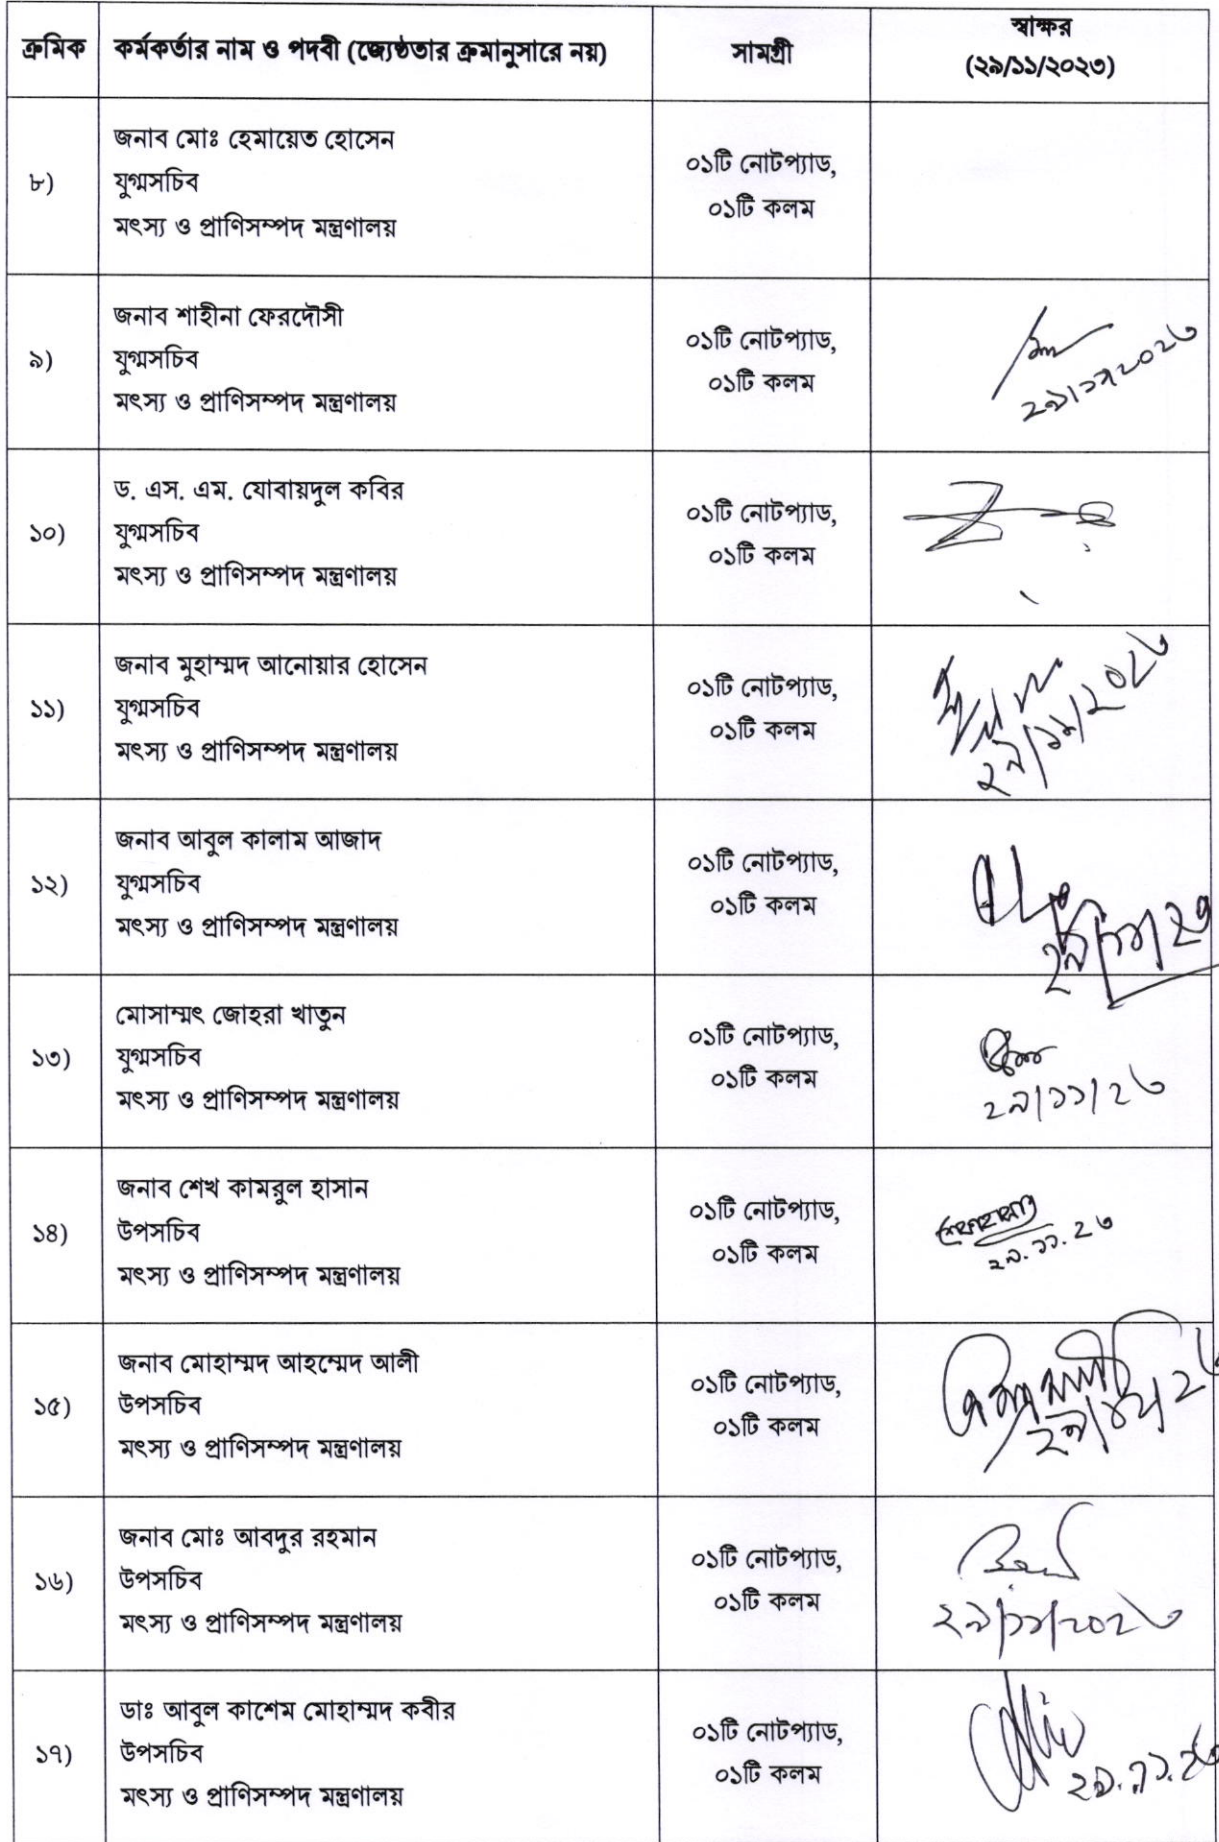 ক্রমিক কর্মকর্তার নাম ও পদবী (জ্যেষ্ঠতার ক্রমানুসারে নয়) সামগ্রী স্বাক্ষর
(২৯/১১/২০২৩)
৮) জনাব মোঃ হেমায়েত হোসেন
যুগ্মসচিব
মৎস্য ও প্রাণিসম্পদ মন্ত্রণালয়
০১টি নোটপ্যাড,
০১টি কলম
৯) জনাব শাহীনা ফেরদৌসী
যুগ্মসচিব
মৎস্য ও প্রাণিসম্পদ মন্ত্রণালয়
০১টি নোটপ্যাড,
০১টি কলম
২৯/১১/২০২৩
১০) ড. এস. এম. যোবায়দুল কবির
যুগ্মসচিব
মৎস্য ও প্রাণিসম্পদ মন্ত্রণালয়
০১টি নোটপ্যাড,
০১টি কলম
১১) জনাব মুহাম্মদ আনোয়ার হোসেন
যুগ্মসচিব
মৎস্য ও প্রাণিসম্পদ মন্ত্রণালয়
০১টি নোটপ্যাড,
০১টি কলম
২৯/১১/২০২৩
১২) জনাব আবুল কালাম আজাদ
যুগ্মসচিব
মৎস্য ও প্রাণিসম্পদ মন্ত্রণালয়
০১টি নোটপ্যাড,
০১টি কলম
২৯/১১/২৩
১৩) মোসাম্মৎ জোহরা খাতুন
যুগ্মসচিব
মৎস্য ও প্রাণিসম্পদ মন্ত্রণালয়
০১টি নোটপ্যাড,
০১টি কলম
২৯/১১/২৩
১৪) জনাব শেখ কামরুল হাসান
উপসচিব
মৎস্য ও প্রাণিসম্পদ মন্ত্রণালয়
০১টি নোটপ্যাড,
০১টি কলম
২৯.১১.২৩
১৫) জনাব মোহাম্মদ আহম্মেদ আলী
উপসচিব
মৎস্য ও প্রাণিসম্পদ মন্ত্রণালয়
০১টি নোটপ্যাড,
০১টি কলম
২৯/১১/২৩
১৬) জনাব মোঃ আবদুর রহমান
উপসচিব
মৎস্য ও প্রাণিসম্পদ মন্ত্রণালয়
০১টি নোটপ্যাড,
০১টি কলম
২৯/১১/২০২৩
১৭) ডাঃ আবুল কাশেম মোহাম্মদ কবীর
উপসচিব
মৎস্য ও প্রাণিসম্পদ মন্ত্রণালয়
০১টি নোটপ্যাড,
০১টি কলম
২৯.১১.২৩